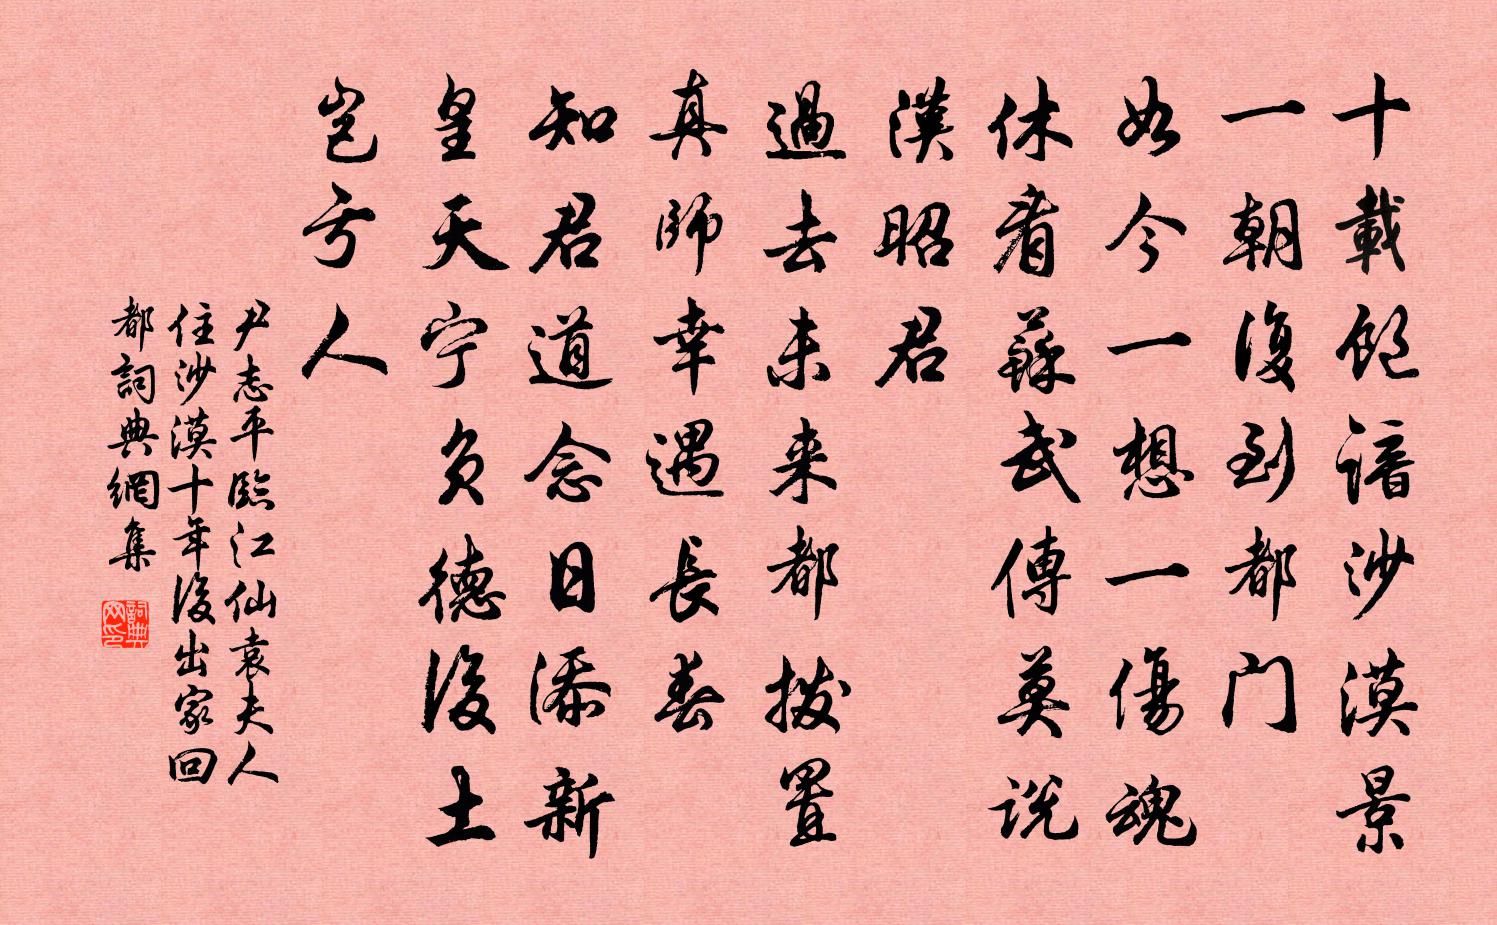 十載飽諳沙漠景
一朝復到都门
如今一想一傷魂
休看蘇武傳莫説
漢昭君
過去未来都撥置
真師幸遇長春
知君道念日添新
皇天宁负德後土
岂亏人
尹志平臨江仙袁夫人
住沙漠十年後出家回
都詞典網集
詞典网印